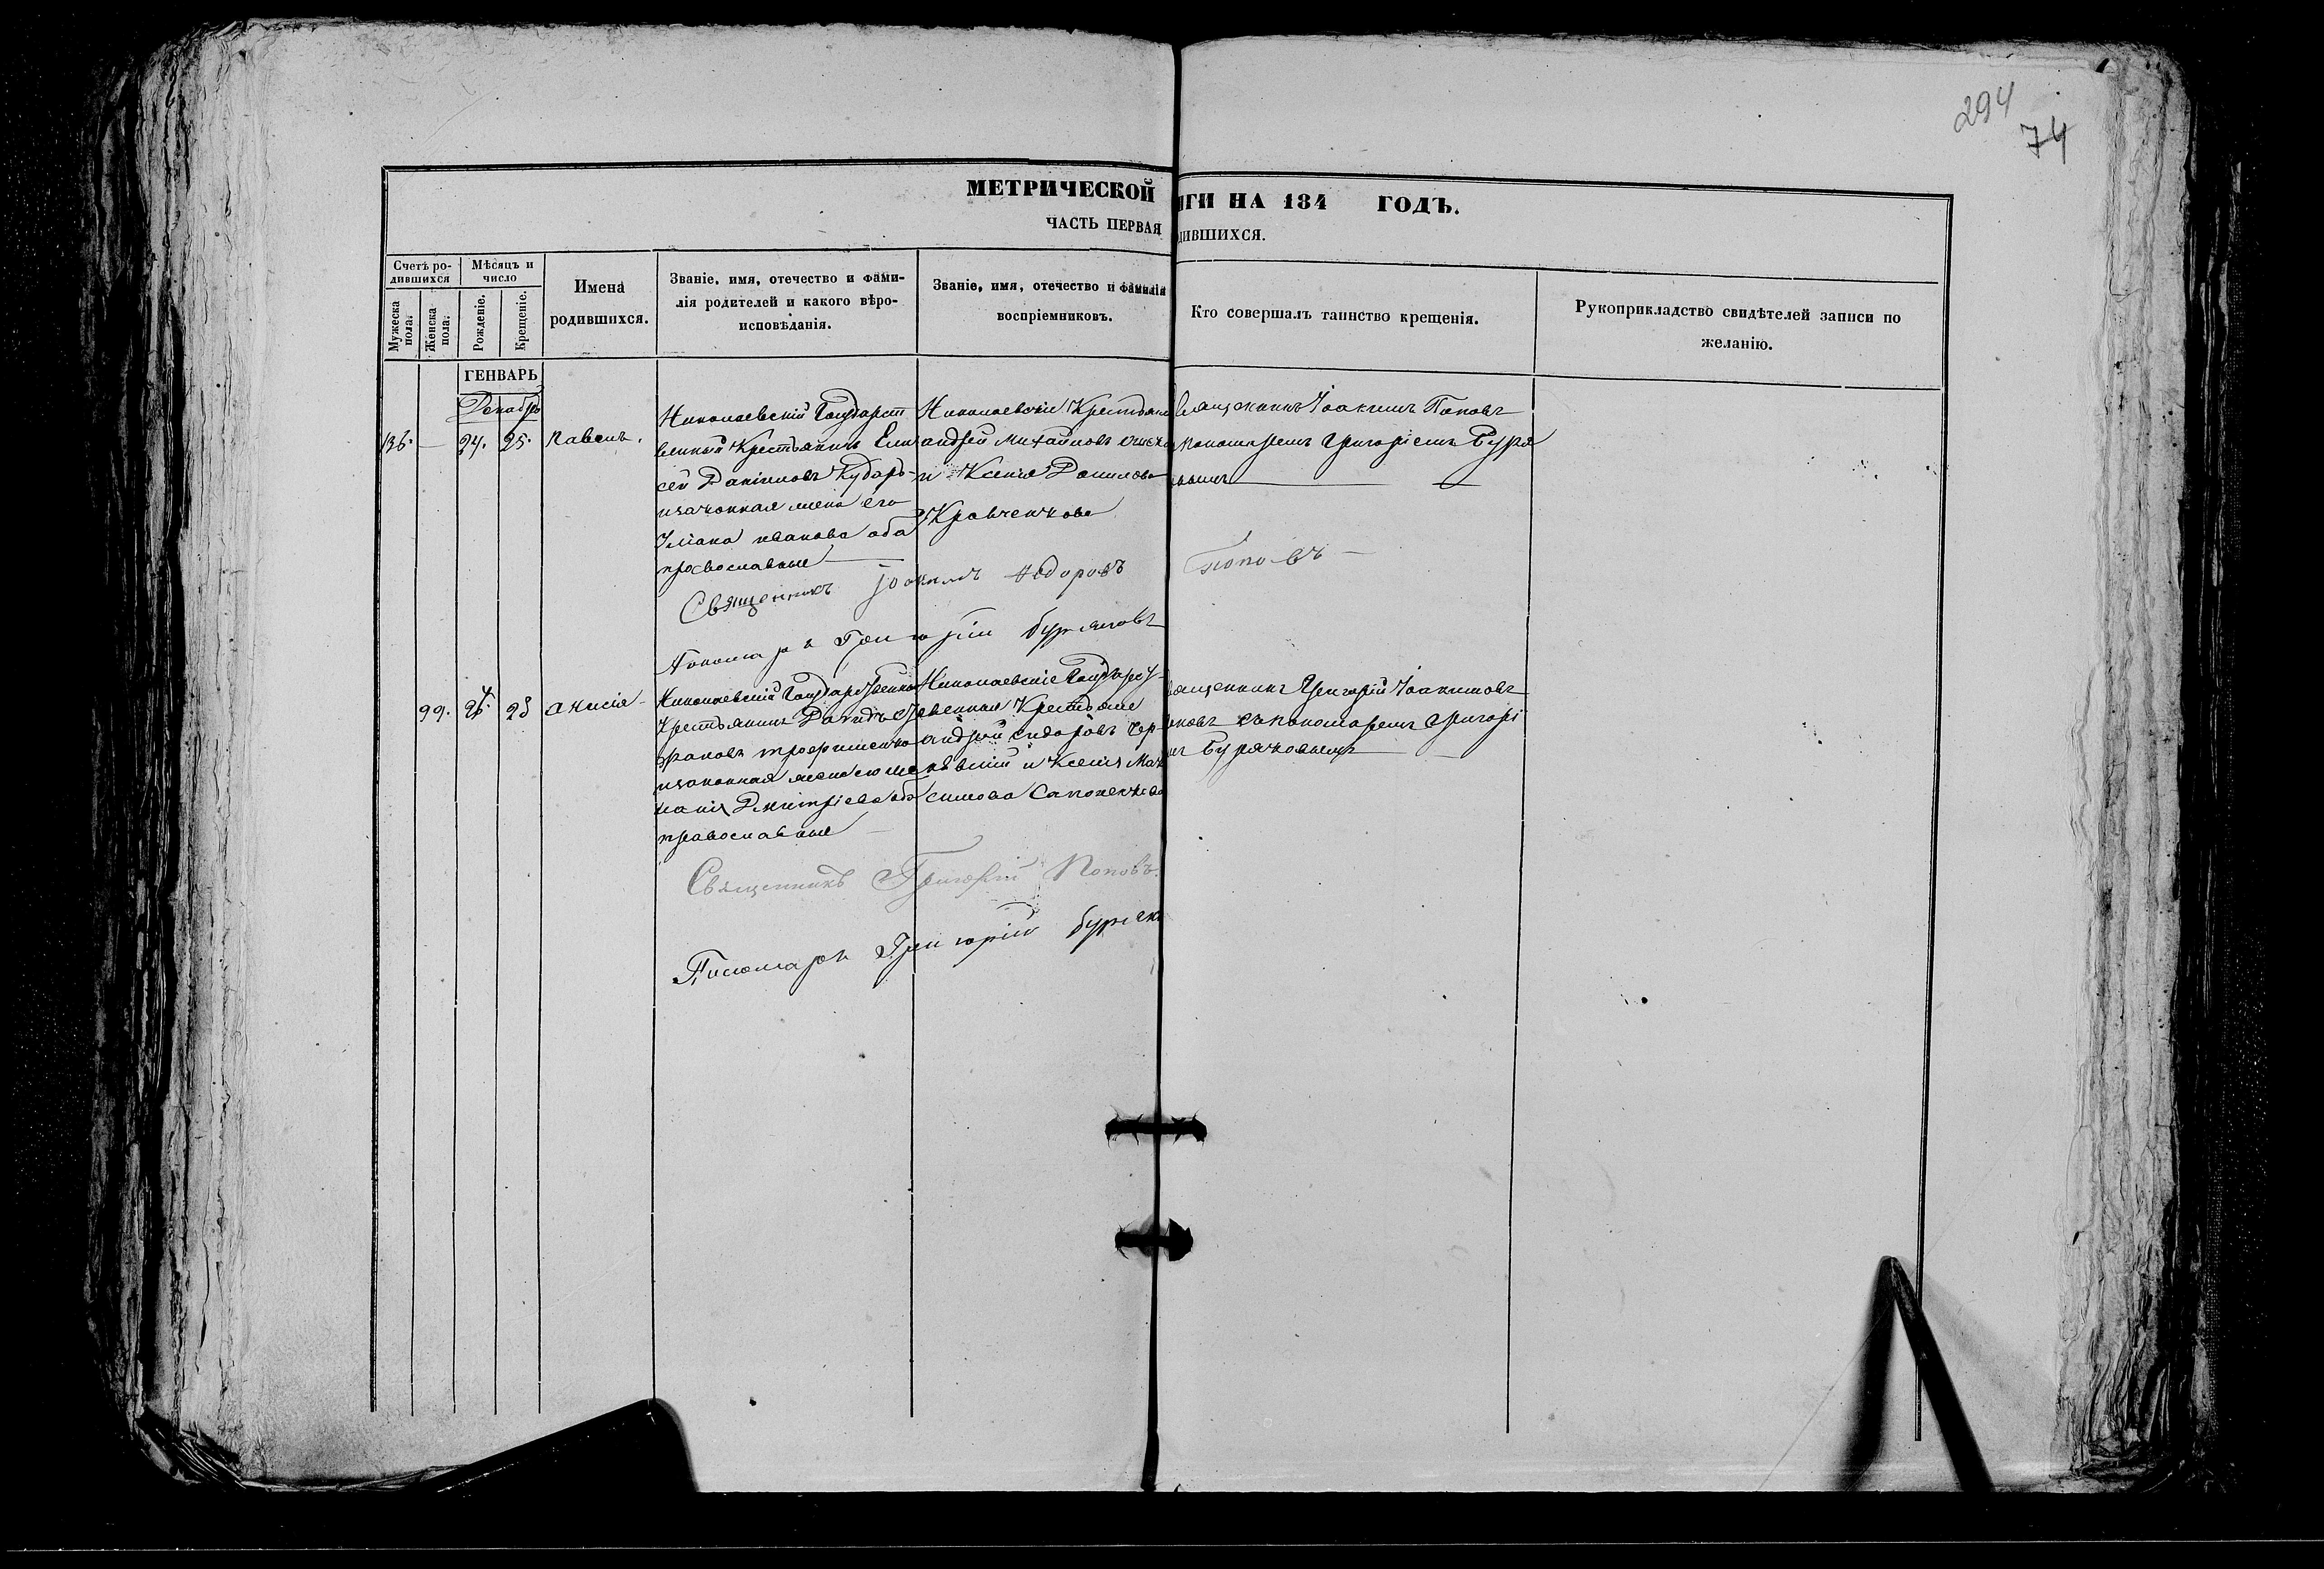 294
74
МЕТРИЧЕСКОЙ ИГИ НА 184 ГОДЪ.
ЧАСТЬ ПЕРВАЯ ДИВШИХСЯ.
Счетъ ро-
дившихся
Мужеска
пола.
Женска
пола.
Мѣсяцъ и
число
Рожденіе.
Крещеніе.
Имена
родившихся.
Званіе, имя, отечество и фами-
лія родителей и какого вѣро-
исповѣданія.
Званіе, имя, отечество и фамилія
воспріемниковъ.
Кто совершалъ таинство крещенія.
Рукоприкладство свидѣтелей записи по
желанію.
ГЕНВАРЬ
Декабрь
136. — 24. 25. Павелъ.
Николаевскій Государст
венный Крестьянинъ Ели
сей Даніиловъ Кударь
изаконная жена его
Уліана иванова оба
православные
Николаевскіе Крестьяне
андрей михайловъ
и Ксенія Данилова
Кравченкова
Священникъ Іоакимъ Поповъ
пономаремъ Григоріемъ Буря
ковымъ
Священникъ Іоакимъ Ѳедоровъ Поповъ
Пономарь Григорій Буряковъ
99. 28 Анисія
Николаевскій Государственный
Крестьянинъ Давидъ
трофименко
изаконная жена его ме
ланія Дмитріева оба
православные
Николаевскіе Государст
венныя Крестьяне
андрей сидоровъ Чер
нѣвскій и Ксенія Мак
симова Сапоненкова
Священникъ Григорій Іоакимовъ
повъ съпономаремъ Григорі
мъ Буряковымъ
Священникъ Григорій Поповъ.
Пономарь Григорій Буряк